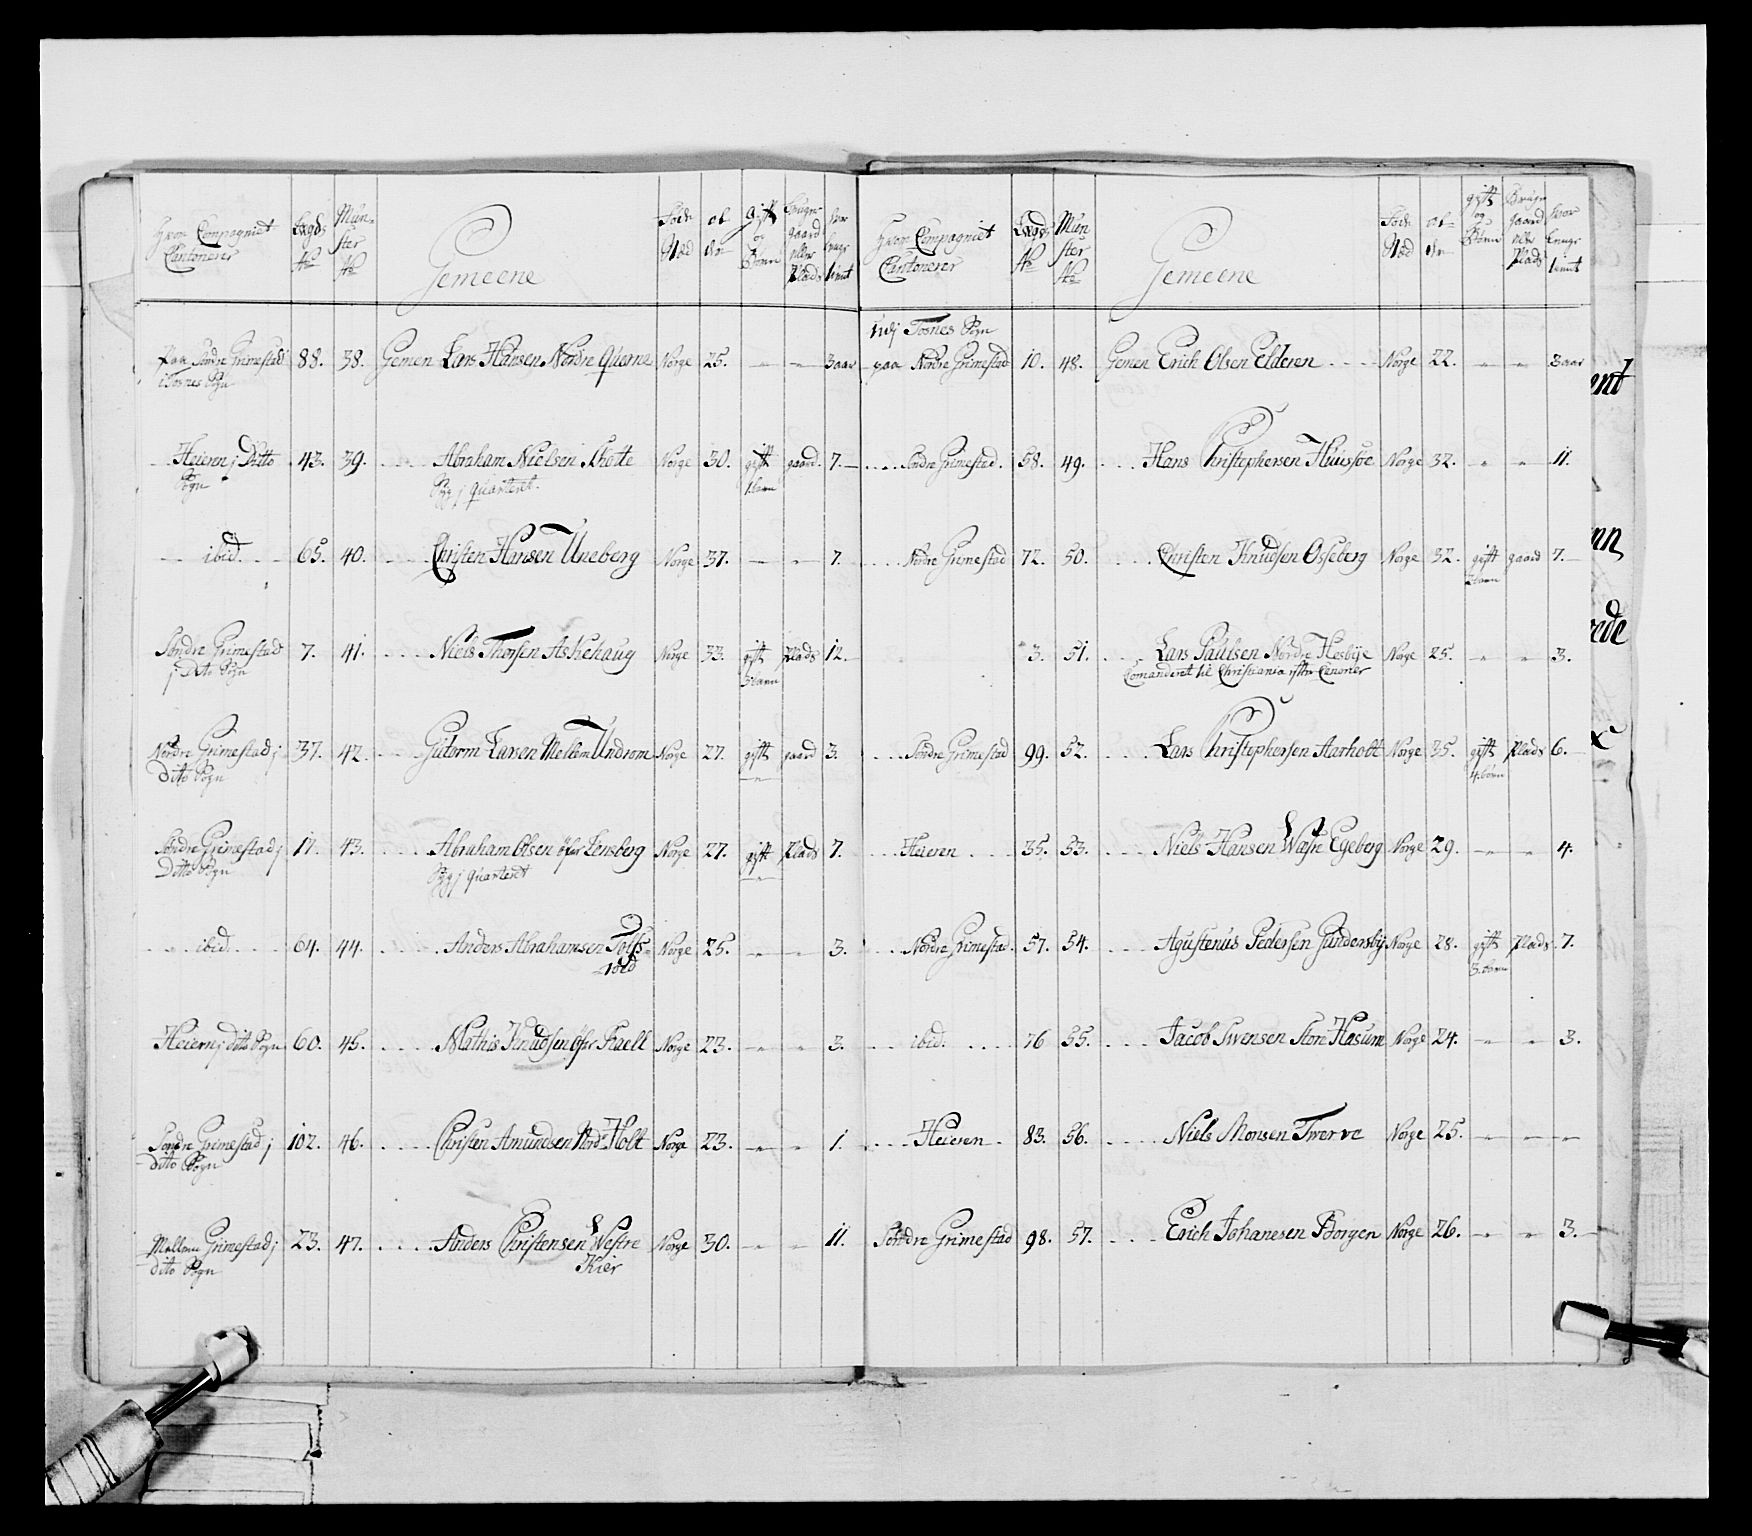 Hvor Compagniet Cantonerer | Lægds No | Mun-ster No | Gemeene | Føde Stæd | al der | Gift og Børn | bruger gaard eller Plads | hvor lenge tient
paa Søndre Grimestad i Tosnes Sogn | 88. | 38. | Gemen Lars Hansen Nordre Querne | Norge | 25. | - | - | 3 aar
Heieren j Ditto Sogn | 43. | 39. | Abraham Nielsen Skotte | Norge | 30. | gift 1 barn | gaard. | 7.
Syg j quarteret.
ibid. | 65. | 40. | Christen Hansen Uneberg | Norge | 37. | - | - | 7.
Søndre Grimestad j Dito Sogn | 7. | 41. | Niels Thorsen Askehaug | Norge | 33. | gift 3 barn | Plads | 12.
Nordre Grimestad j dito Sogn | 37. | 42. | Gutorm Larsen Mellem Undrom | Norge | 27. | gift - | gaard | 3.
Søndre Grimestad j Ditto Sogn | 17. | 43. | Abraham Olsen øfre Lensberg | Norge | 27. | gift - | Plads | 7.
Syg j quarteret
ibid. | 64. | 44. | Anders Abrahamsen | Norge | 25. | - | - | 3.
Heieren j dito Sogn | 60. | 45. | Mathis Knudsen øfre Ræell | Norge | 23. | - | - | 3.
Søndre Grimestad j dito Sogn | 102. | 46. | Christen Amundsen Nord-Holt | Norge | 23. | - | - | 1.
Mellem Grimestad j dito Sogn | 23. | 47. | Anders Christensen Westre Kier | Norge | 30. | - | - | 11.
Hvor Compagniet Cantonerer | Lægds No | Mun ster No | Gemeene | Føde Stæd | al der | gift og Børn | Bruger gaard eller Plads | hvor lenge tient
Udj Tosnes Sogn
paa Nordre Grimestad | 10. | 48. | Gemen Erich Olsen Elderen | Norge | 22. | - | - | 3 aar
Søndre Grimestad. | 58. | 49. | Hans Christophersen Huusøe | Norge | 32. | - | - | 11.
Nordre Grimestad | 72. | 50. | Christen Knudsen Osseberg | Norge | 32. | gift 2 barn | gaard | 7.
3. | 51. | Lars Paulsen Nordre Hesbye | Norge | 25. | - | - | 3.
Comanderet til Christiania efter Canoner
Søndre Grimestad | 99. | 52. | Lars Christophersen Aarholt | Norge | 35. | gift 4. børn | Plads | 6.
Heieren | 35. | 53. | Niels Hansen Egeberg | Norge | 29. | - | - | 4.
Nordre Grimestad. | 57. | 54. | Agustenus Pedersen Gundersby | Norge | 28. | gift 3. børn | Plads | 7.
ibid. | 76 | 55. | Jacob Swensen Store Hasum | Norge | 24. | - | - | 3.
Heieren | 83. | 56. | Niels Monsen Tværve | Norge | 25. | - | - | -
Søndre Grimestad | 98. | 57. | Erich Johanesen Borgen | Norge | 26. | - | - | 3.